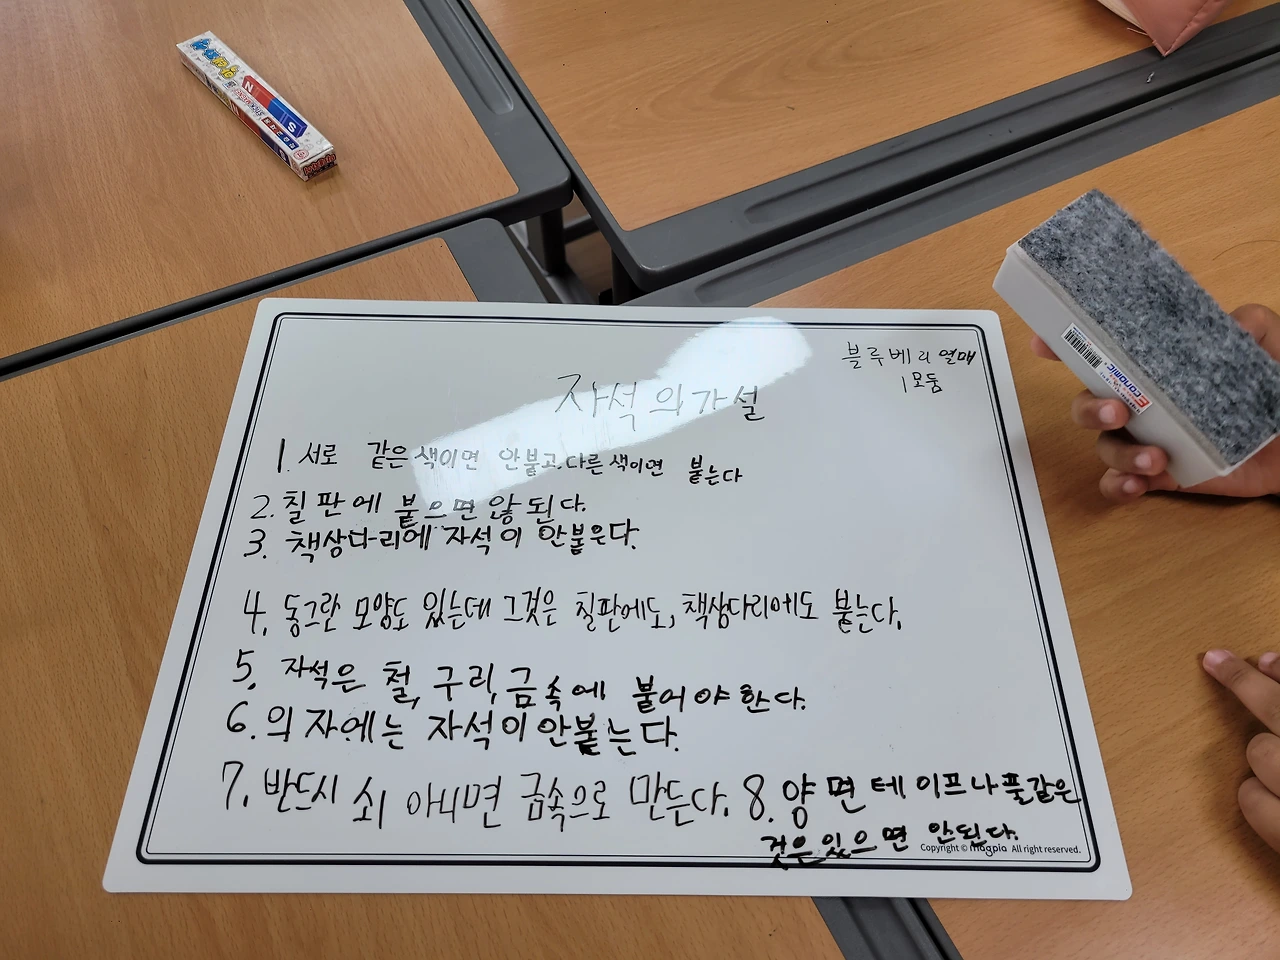 N
S
Economic
블루베리열매
1모둠
자석의가설
1. 서로 같은 색이면 안붙고, 다른 색이면 붙는다
2. 칠판에 붙으면 않된다.
3. 책상다리에 자석이 안붙은다.
4. 동그란 모양도 있는데 그것은 칠판에도, 책상다리에도 붙는다.
5. 자석은 철, 구리, 금속에 붙어야 한다.
6. 의자에는 자석이 안붙는다.
7. 반드시 쇠 아니면 금속으로 만든다. 8. 양면테이프나 풀같은
것은 있으면 안된다.
Copyright © magpia All right reserved.